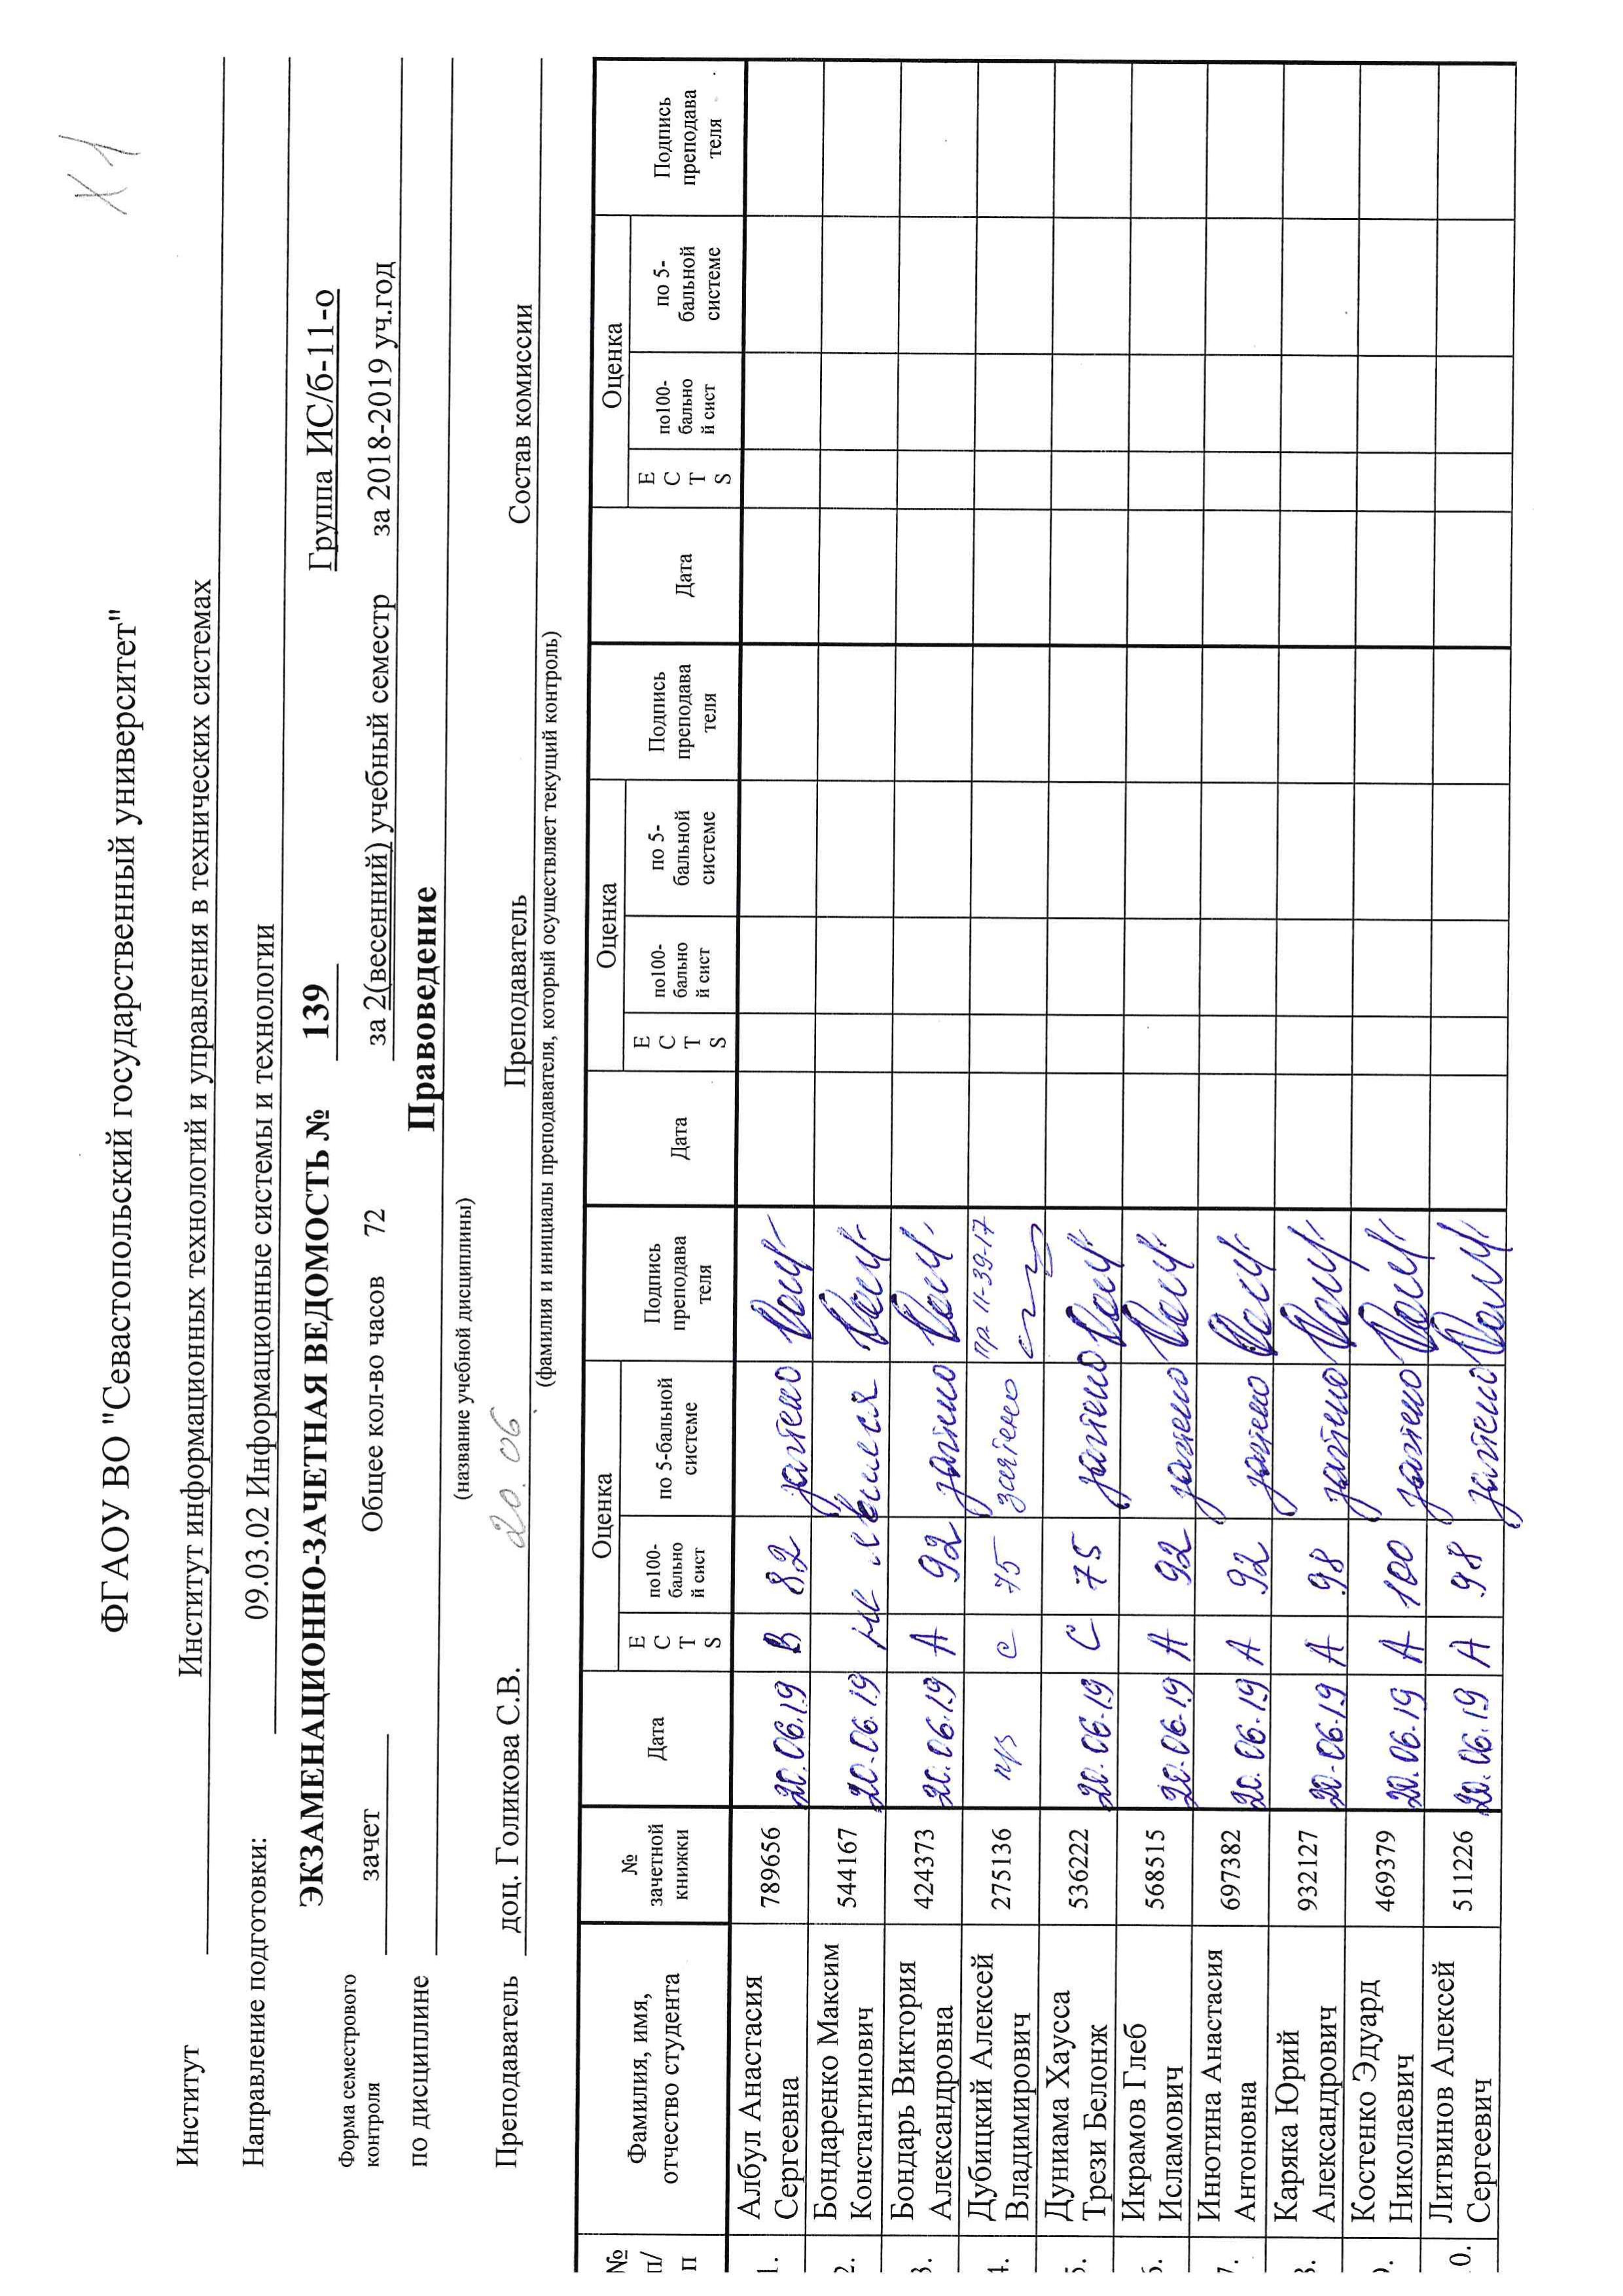 Х1
ФГАОУ ВО "Севастопольский государственный университет"
Институт Институт информационных технологий и управления в технических системах
Направление подготовки: 09.03.02 Информационные системы и технологии
ЭКЗАМЕНАЦИОННО-ЗАЧЕТНАЯ ВЕДОМОСТЬ № 139 Группа ИС/б-11-о
Форма семестрового
контроля зачет Общее кол-во часов 72 за 2(весенний) учебный семестр за 2018-2019 уч.год
по дисциплине Правоведение
(название учебной дисциплины)
Преподаватель доц. Голикова С.В. 20.06 Преподаватель Состав комиссии
(фамилия и инициалы преподавателя, который осуществляет текущий контроль)
№ п/п Фамилия, имя, отчество студента № зачетной книжки Дата Оценка ECTS по100-бально й сист по 5-бальной системе Подпись преподава теля Дата Оценка ECTS по100-бально й сист по 5-бальной системе Подпись преподава теля Дата Оценка ECTS по100-бально й сист по 5-бальной системе Подпись преподава теля
1. Албул Анастасия Сергеевна 789656 20.06.19 В 82 зачтено
2. Бондаренко Максим Константинович 544167 20.06.19 не явился
3. Бондарь Виктория Александровна 424373 20.06.19 А 92 зачтено
4. Дубицкий Алексей Владимирович 275136 п/з с 75 зачтено пр 11-39-17
5. Дуниама Хаусса Трези Белонж 536222 20.06.19 С 75 зачтено
6. Икрамов Глеб Исламович 568515 20.06.19 А 92 зачтено
7. Инютина Анастасия Антоновна 697382 20.06.19 А 92 зачтено
8. Каряка Юрий Александрович 932127 20.06.19 А 98 зачтено
9. Костенко Эдуард Николаевич 469379 20.06.19 А 100 зачтено
0. Литвинов Алексей Сергеевич 511226 20.06.19 А 98 зачтено